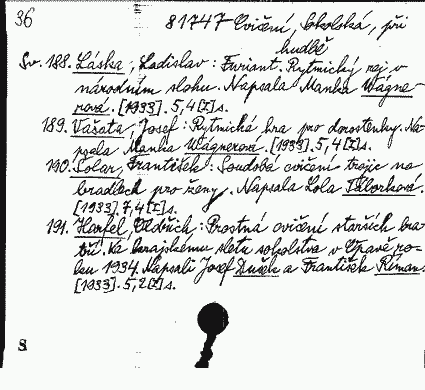 36
81747 Cvičení, Sokolská, při
hudbě
Sv. 188. Láska, Ladislav: Furiant. Rytmický rej v
národním slohu. Napsala Manka Wágne-
rová. [1933]. 5,4[I]s.
189. Vašata, Josef: Rytmická hra pro dorostenky. Na-
psala Manka Wágnerová. [1933]. 5,4[I]s.
190. Šolar, František: Soudobá cvičení trojic na
bradlech pro ženy. Napsala Lola Táborková.
[1933]. 7,4[I]s.
191. Harfel, Oldřich: Prostná cvičení starších bra-
tří. Ke krajskému sletu sokolstva v Opavě ro-
ku 1934. Napsali Josef Dušek a František Říman.
[1933]. 5,2[I]s.
S